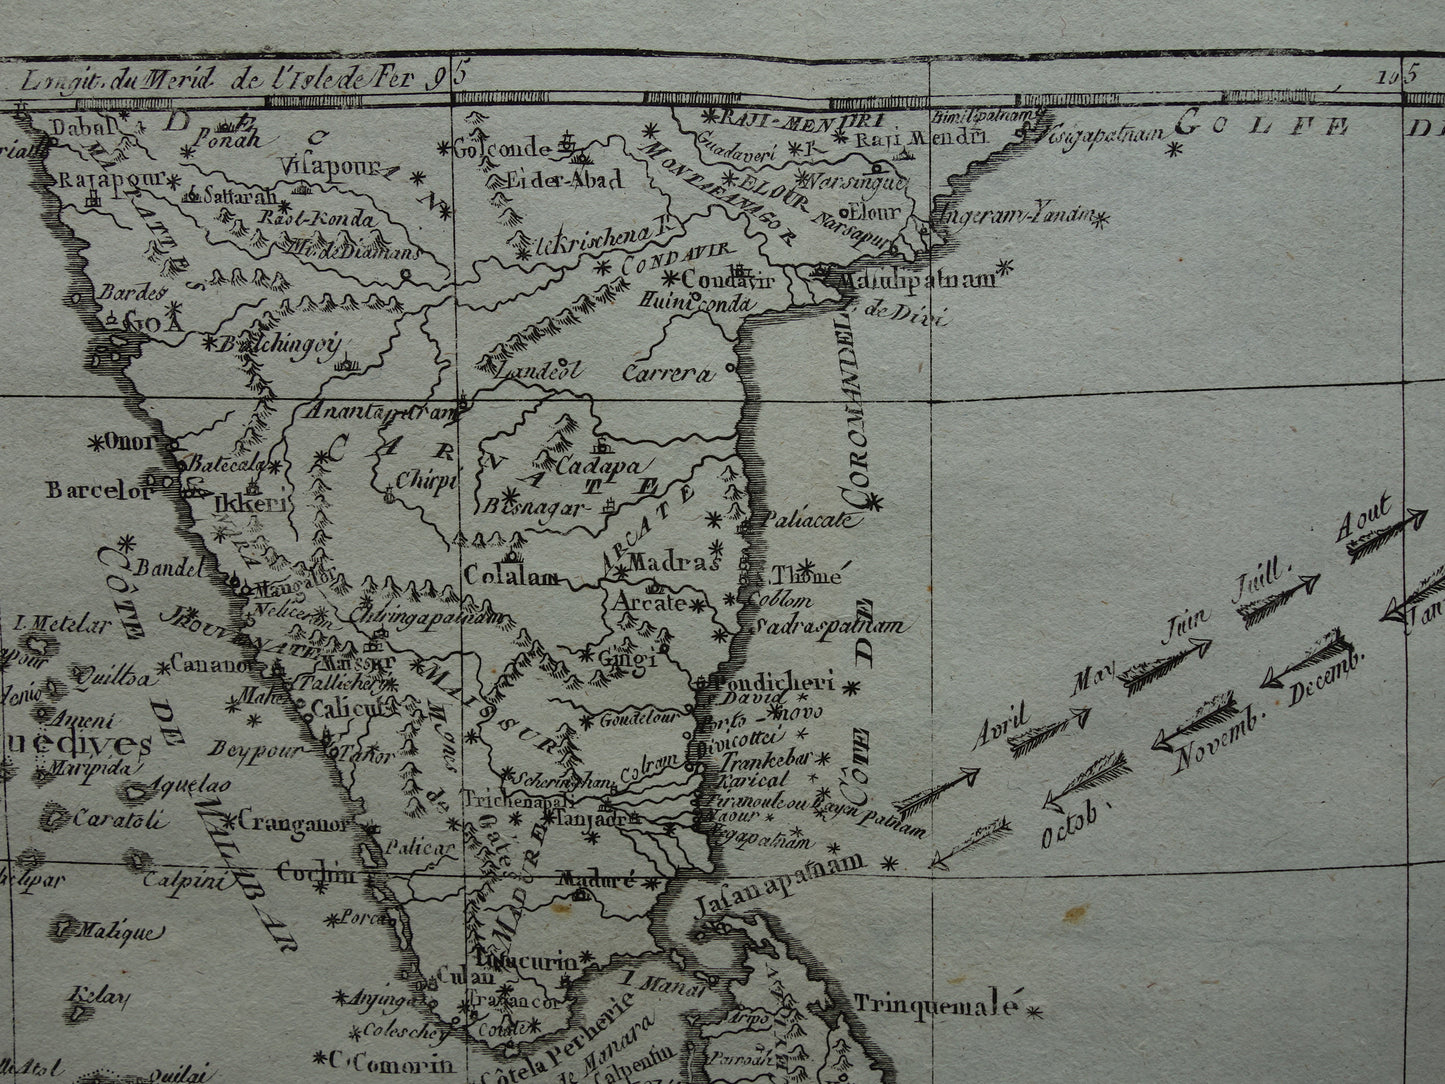 Longit. du Merid de l'Isle de Fer 95
105
Dabal
DECAN
Ponah
Visapour
Golconde
RAJI-MENDRI
Guadaveri
Raji Mendri
Bimilipatnam
Visigapatnam
GOLFE DE
MARATTES
Rajapour
Sattarah
Raol-Konda
Mi. de Diamans
Eider-Abad
MONTAFANAGOR
ELOUR
Narsingue
Elour
Narsapur
Ingeram-Yanam
le Krischena R
CONDAVIR
Condavir
Masulipatnam
Huiniconda
de Divi
Bardes
GOA
Balchingoy
Landeol
Carrera
CÔTE DE COROMANDEL
Anantapuram
CARNATE
Onor
Batecala
Chirpi
Cadapa
Barcelor
Ikkeri
Bisnagar
ARCATE
Paliacate
Aout
Bandel
Mangalor
Colalam
Madras
Thomé
Juill.
Neliceram
Chiringapatnam
Arcate
Coblom
Sadraspatnam
Juin
I. Metelar
CÔTE DE MALABAR
Cananor
Maissur
MAISSUR
Gingi
Pondicheri
May
Decemb.
Quiltsa
Mahé
Tallichery
Calicut
Goudelour
David
Porto-novo
Avril
Novemb.
Ameni
Beypour
Tanor
Mgnes de Gates
Colram
Divicottei
Trankebar
Maripida
Scheringham
Karical
Aquelao
Trichenapali
Tanjaor
Naour
Octob.
Caratoli
Cranganor
Negapatnam
Palicar
MADURE
Calpini
Cochin
Maduré
Jafanapatnam
Malique
Porca
Tutucurin
Culan
I. Manar
Kelay
Anjinga
Travancor
Trinquemalé
Coleschey
Côte la Pecherie
Aripo
Comorin
de Manara
Calpentin
Quilai